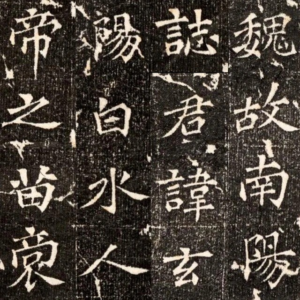 魏故南陽
誌君諱玄
陽白水人
帝之苗裔